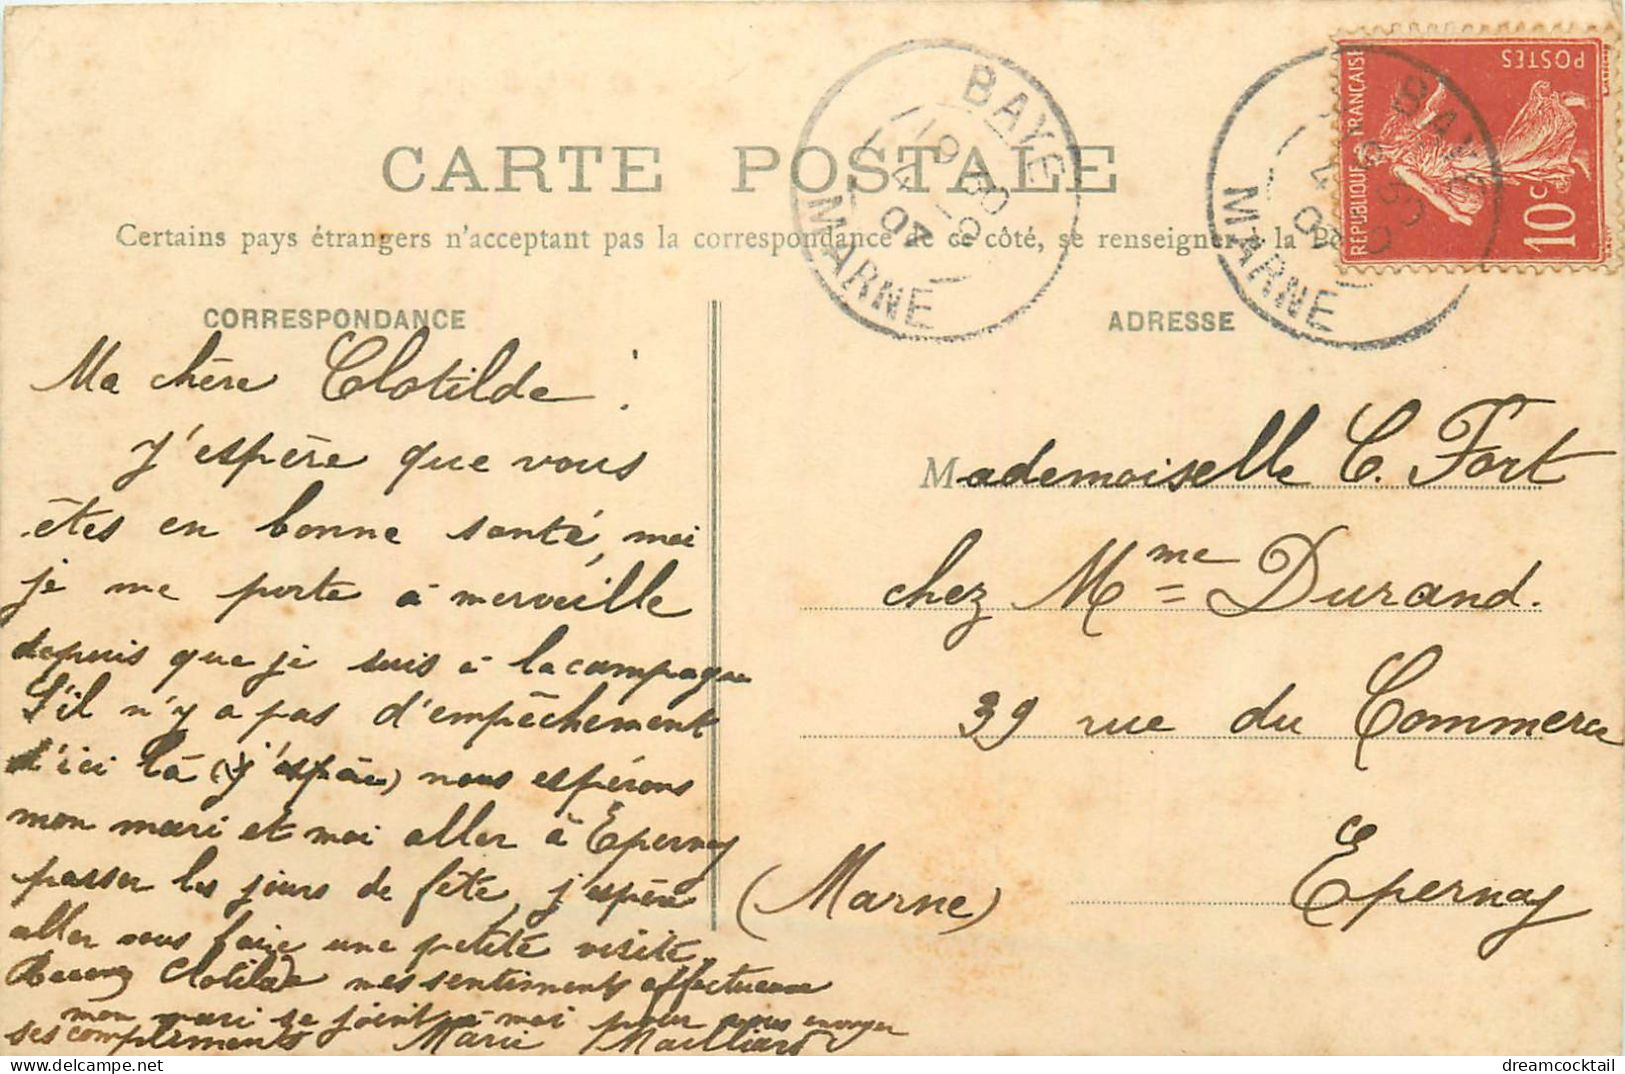 CARTE POSTALE
Certains pays étrangers n'acceptant pas la correspondance de ce côté, se renseigner à la
BAYE
MARNE
BAYE
MARNE
REPUBLIQUE FRANÇAISE
POSTES
10c
CORRESPONDANCE
Ma chère Clotilde !
J'espère que vous
êtes en bonne santé, moi
je me porte à merveille
depuis que je suis à la campagne
S'il n'y a pas d'empêchement
d'ici là (j'espère) nous espérons
mon mari et moi aller à Epernay
passer les jours de fête, j'espère
aller vous faire une petite visite.
Recevez Clotilde mes sentiments affectueux
mon mari se joint à moi pour vous envoyer
ses compliments Marie Mailliard
ADRESSE
Mademoiselle C. Fort
chez Mme Durand.
39 rue du Commerce
Epernay
(Marne)
dreamcocktail